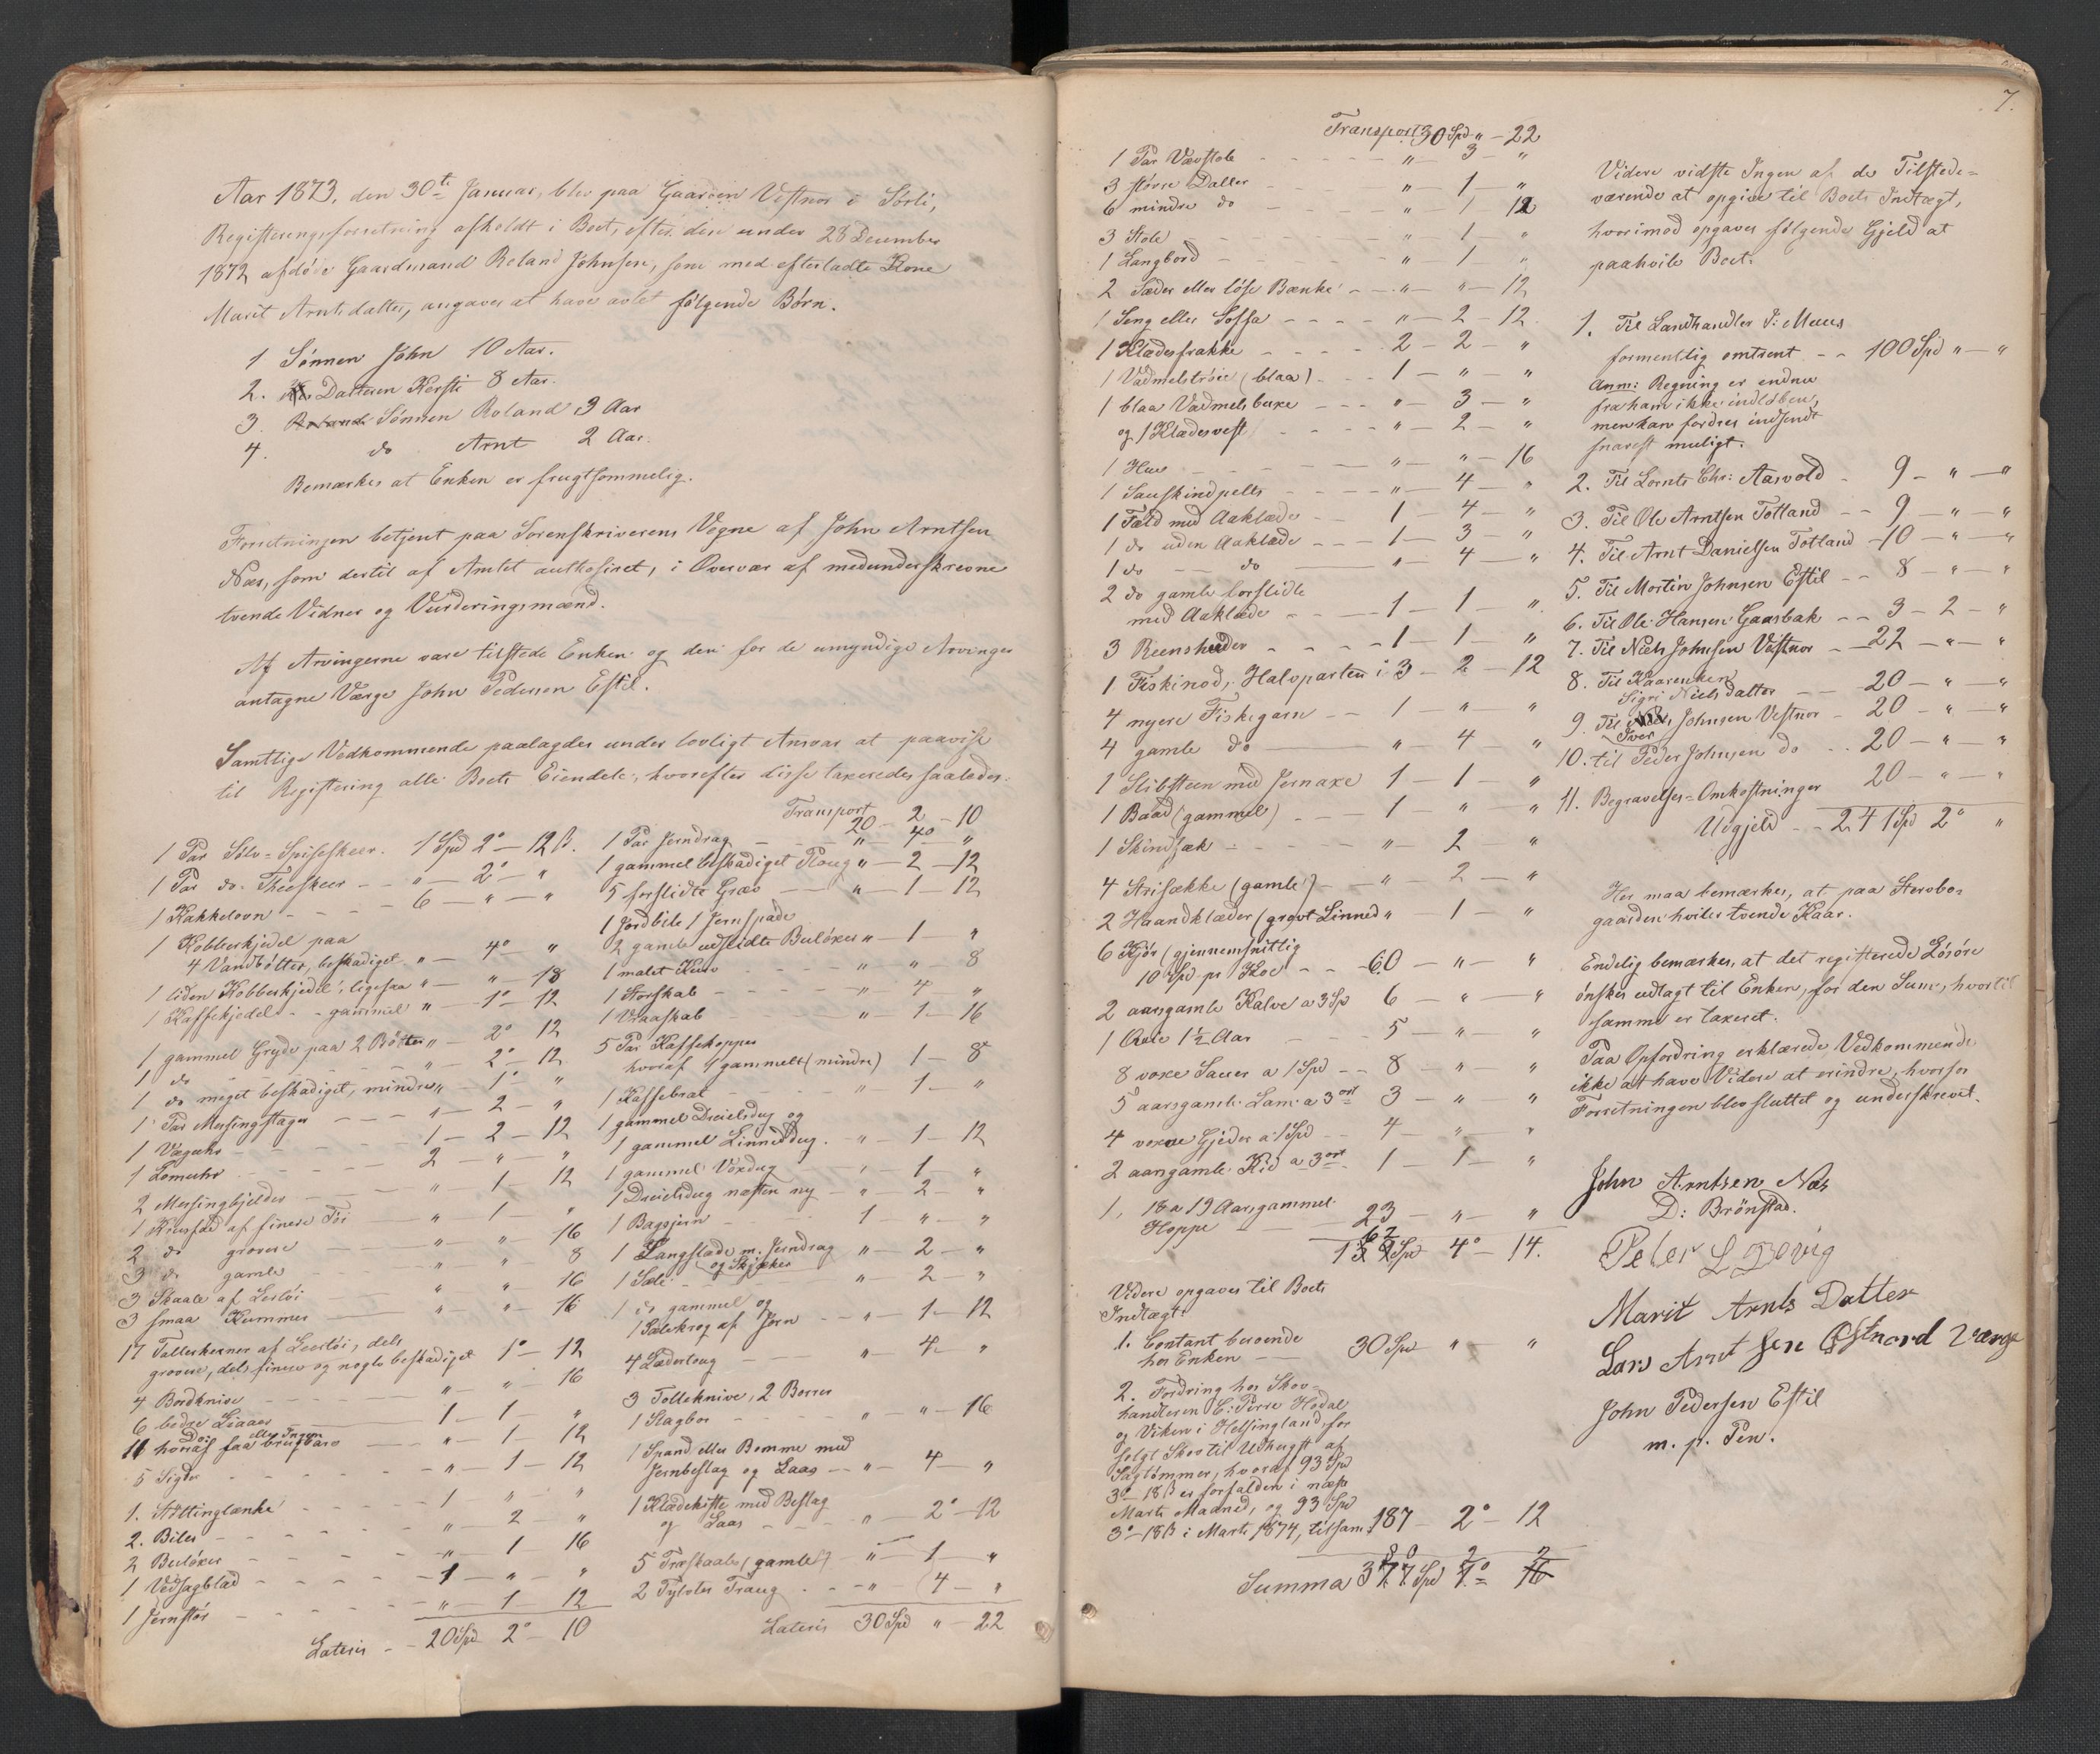 Aar 1873, den 30te Januar, blev paa Gaarden Vestnor i Sørli,
Registreringsforretning afholdt i Boet, efter den under 28 December
1872 afdøde Gaardmand Roland Johnsen, som med efterladte Kone
Marit Arntsdatter, angaves at have avlet følgende Børn.
1 Sønnen John 10 Aar.
2. Datteren Kersti 8 Aar.
3. Roland Sønnen Roland 3 Aar
4. do Arnt 2 Aar.
Bemærkes at Enken er frugtsommelig.
Forretningen betjent paa Sorenskriverens Vegne af John Arntsen
Næs, som dertil af Amtet authoriseret, i Overvær af medunderskrevne
tvende Vidner og Vurderingsmænd.
Af Arvingerne vare tilstede Enken og den for de umyndige Arvinger
antagne Værge John Pedersen Estil.
Samtlige Vedkommende paalagdes under lovligt Ansvar at paavise
til Registrering alle Boets Eiendele, hvorefter disse taxeredes saaledes:
1 Par Sølv-Spiseskeer. 1 Spd 2° - 12 ß.
1 Par do. Theeskeer - - " - 2° - "
1 Kakkelovn - - - - 6 - " - "
1 Kobberkjedel paa
4 Vandbøtter, beskadiget - " - 4° - "
1 liden Kobberkjedel, ligesaa " - " - 18
1 Kaffekjedel - - gammel " - 1° - 12
1 gammel Gryde paa 2 Bøtter " - 2° 12
1 do - - 2° - 12
1 do meget beskadiget, mindre " - 1° - "
1 Par Messingstager - - " - 2 - "
1 Væguhr - - 1 - 2 - 12
1 Lomuhr - - 2 - " - "
2 Messingbjelder - " - 1 - 12
1 Kruusfad af finere Tøi " - 1 "
2 do grovere - " - " - 16
3 do gamle " - " 8
3 Skaale af Leertøi - " " 16
3 smaa Kummer - " - " - 16
17 Tallerkener af Leertøi, dels
grovere, dels finere og nogle beskadiget 1° - 12
4 Bordknive - - " - " - 16
6 bedre Liaaer - 1 - 1 - "
11 Do: hvoraf faa eller Ingen brugbare - " - 1 - 12
5 Sigder - - - " - 1 - 12
1. Støttinglænke - - - 1 " - "
2. Biler - - - " - 2 - "
2 Buløxer - - - " - 1 16
1 Vedsagblad - - - 1 - " - "
1 Jernstør - - - " - 1 - 12
Lateris - - 20 Spd 2° - 10
Transport 20 - 2 - 10
1 Par Jerndrag - - " - 4° - "
1 gammel beskadiget Ploug " - 2 - 12
5 forslidte Græv - - " - 1 - 12
1 Jordbile 1 Jernspade
2 gamle udslidte Buløxer " - 1 - "
1 malet Kuro - - " - " - 8
1 Storskab - - " - 4 - "
1 Vraaskab - - " - 1 - 16
5 Par Kaffekopper
hvoraf 4 gammelt (mindre) 1 - 8
1 Kaffebræt - - " - 1 - "
1 gammel Dreielsdug og
1 gammel Linneddug. - " - 1 - 12
1 gammel Voxdug - " - 1 - "
1 Dreielsdug næsten ny - " - 2 - "
1 Bagsjern - - 1 " - "
1 Langslæde m. Jerndrag og Skjæker " - 2 - "
1 Sæle - - " - 2 - "
1 do gammel og
1 Sælekrog af Jern - - " - 1 - 12
4 Lædertoug - - " - 4 - "
3 Tolleknive, 2 Borrer
1 Slagbor - - - " " - 16
1 Spand eller Bomme med
Jernbeslag og Laas - - " - 4 - "
1 Klædekiste med Beslag
og Laas - - - " - 2° - 12
5 Træskaale (gamle) - " - 1 - "
2 Tylvter Traug - - " - 4 - "
Lateris 30 Spd " - 22
7.
Transport 30 Spd " - 22
1 Par Vævstole - - - " - 3 - "
3 større Daller - - - " - 1 - "
6 mindre do - - - " - 1 12
3 Stole - - - " - 1 - "
1 Langbord - - - " - 1 - "
2 Sæder eller løse Bænke - - " - " - 12
1 Seng eller Soffa - - - " - 2 - 12.
1 Klædesfrakke - - - 2 - 2 - "
1 Vadmelstrøie (blaa) - - 1 - " - "
1 blaa Vadmels buxe - - " - 3 - "
og 1 Klædesvest - - " - 2 - "
1 Hue - - - " - " - 16
1 Sauskindpelts - - - " - 4 - "
1 Fæld med Aaklæde - - 1 - 4 - "
1 do uden Aaklæde - - - 1 - 3 - "
1 do - do - " - 4 - "
2 do gamle forslidte
med Aaklæde - - - 1 - 1 - "
3 Reenshuder - - - 1 - 1 - "
1 Fiskinod, Halvparten i 3 - 2 - 12
4 nyere Fiskegarn - - 1 - " - "
4 gamle do - " - 4 "
1 Slibsteen med Jernaxe 1 - 1 - "
1 Baad (gammel) - - 1 " "
1 Skindsæk - - - " - 2 - "
4 Strisække (gamle) - - " - 2 - "
2 Haandklæder (grovt Linned " 1 - "
6 Kjør (gjennemsnitlig
10 Spd pr Koe - - 60 - " - "
2 aarsgamle Kalve a 3 Sp 6 - " - "
1 Oxe 1½ Aar - - 5 - " - "
8 voxe Sauer a 1 Spd - - 8 - " - "
5 aarsgamle Lam a 3 ort 3 - " - "
4 voxne Gjeder a 1 Spd - - 4 - " - "
2 aarsgamle Kid a 3 ort - 1 - 1 - "
1, 18 a 19 Aarsgammel
Hoppe - 23 - " - "
162 Spd 4° - 14.
Videre opgaves til Boets
Indtægt:
1. Contant beroende
hos Enken - 30 Spd " - "
2. Fordring hos Skov-
handleren C: Perre Hodal
og Viken i Helsingland, for
solgt Skov til Udhugst af
Sagtømmer, hvoraf 93 Spd
3° - 18 ß er forfalden i næste
Marts Maaned, og 93 Spd
3° - 18 ß i Marts 1874, tilsam. 187 - 2° - 12
Summa 377 Spd 1° 16
Videre vidste Ingen af de Tilstede-
værende at opgive til Boets Indtægt,
hvorimod opgaves følgende Gjeld at
paahvile Boet:
1. Til Landhandler P: Muus
formentlig omtrent - - 100 Spd " - "
Anm: Regning er endnu
fra ham ikke indløben,
men kan fordres indsendt
snarest muligt.
2. Til Lornts Chr: Aasvold - 9 - " - "
3. Til Ole Arntsen Totland - - 9 - " - "
4. Til Arnt Danielsen Totland - 10 - " - "
5. Til Mortin Johnsen Estil - - 8 - " - "
6. Til Ole Hansen Gaasbak - - 3 - 2 - "
7. Til Niels Johnsen Vestnor - - 22 - " - "
8. Til Kaarenken
Sigri Nielsdatter - - 20 - " - "
9. Til Iver Johnsen Vestnor - 20 - " - "
10. til Peder Johnsen do - - 20 - " - "
11. Begravelses-Omkostninger 20 - " - "
Udgjeld - - 241 Spd 2° "
Her maa bemærkes, at paa Stervbo-
gaarden hviler tvende Kaar.
Endelig bemærkes, at det registrerede Løsøre
ønskes udlagt til Enken, for den Sum, hvortil
samme er taxeret.
Paa Opfordring erklærede Vedkommende
ikke at have Videre at erindre, hvorfor
Forretningen blev sluttet og underskrevet.
John Arntsen Næs
D: Brönstad.
Peter L Devig
Marit Arnts Datter
Lars Arnt sen Østnord Værge
John Pedersen Estil
m. p. Pen.